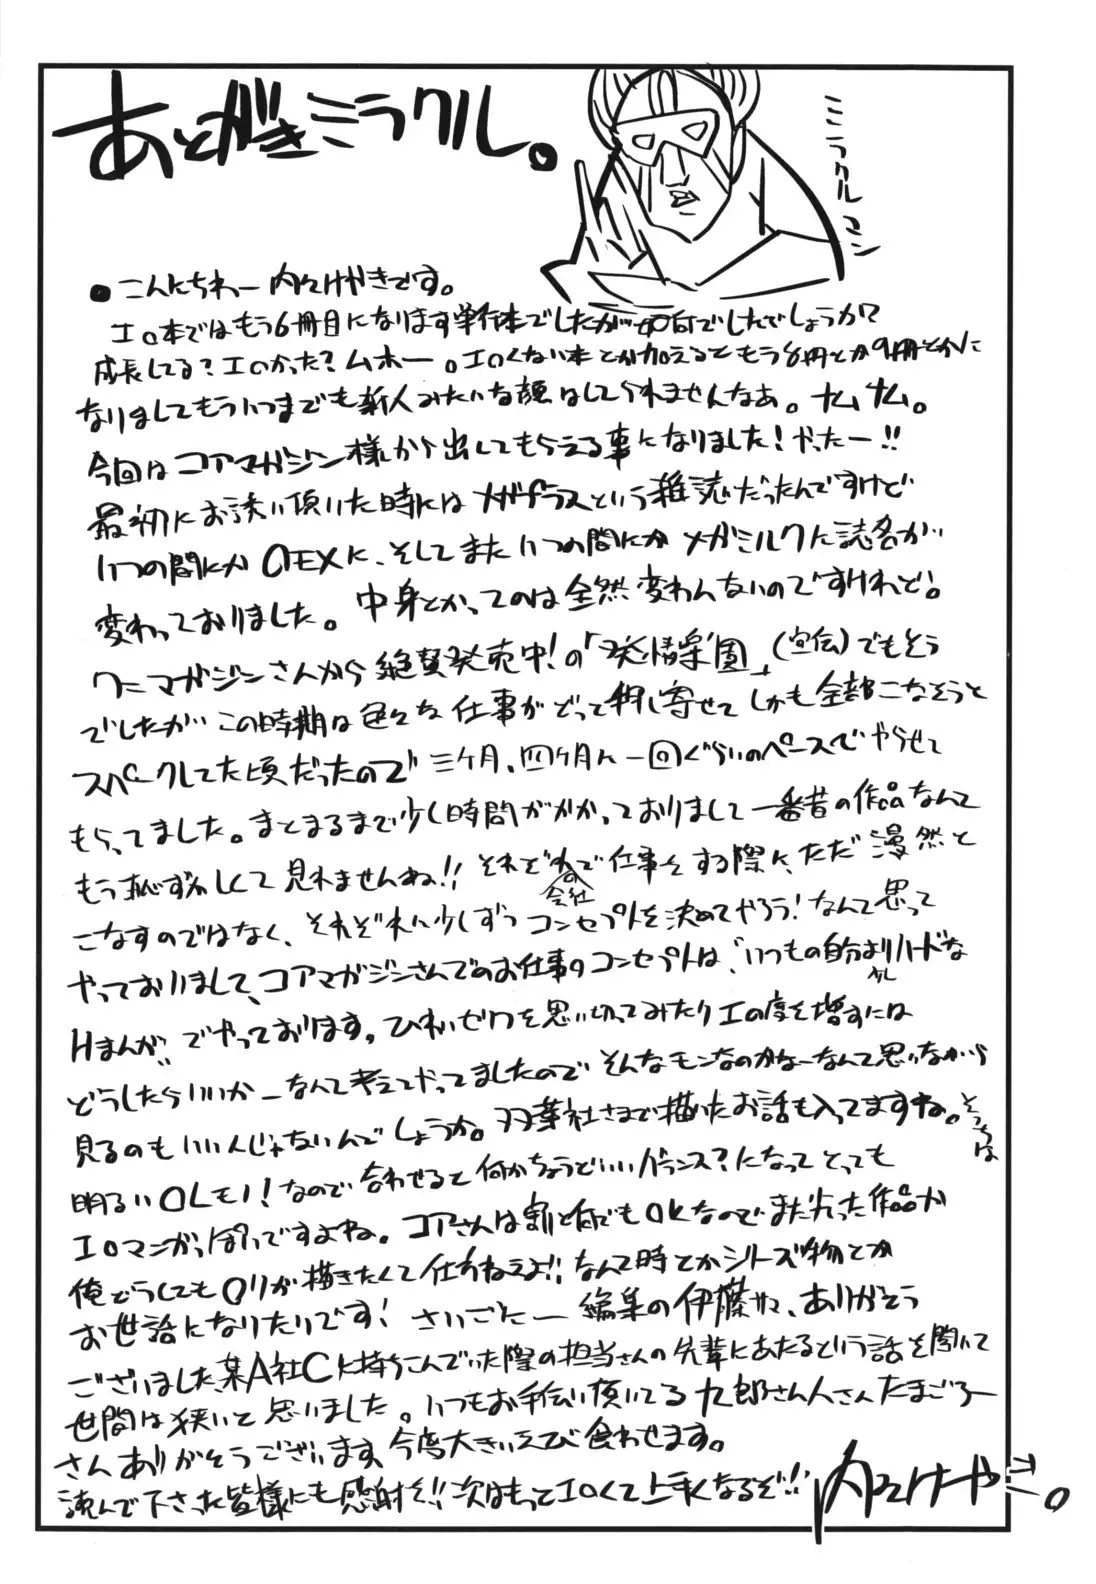 あとがきミラクル。
ミラクルマン
●こんにちわー内々けやきです。
エロ本ではもう6冊目になります単行本でしたが如何でしたでしょうか?
成長してる?エロかった?ムホー。エロくない本とか加えるともう8冊とか9冊とかに
なりましてもういつまでも新人みたいな顔はしてられませんなぁ。ナムナム。
今回はコアマガジン様から出してもらえる事になりました!やったー!!
最初にお誘い頂いた時にはメガプラスという雑誌だったんですけど
いつの間にかOEXに、そしてまたいつの間にかメガミルクに誌名が
変わっておりました。中身とかってのは全然変わんないのですけれど。
ワニマガジンさんから絶賛発売中!の「発情楽園」(宣伝)でもそう
でしたがこの時期は色々な仕事がどって押し寄せてしかも全部こなそうと
スパークしてた頃だったので三ヶ月、四ヶ月に一回ぐらいのペースでやらせて
もらってました。まとまるまで少し時間がかかっておりまして一番昔の作品なんて
もう恥ずかしくて見れませんね!!それぞれの会社で仕事をする際に、ただ漫然と
こなすのではなく、それぞれに少しずつコンセプトを決めてやろう!なんて思って
やっておりまして、コアマガジンさんでのお仕事のコンセプトは、"いつもの自分より少しハードな
Hまんが"でやっております。ひわいゼリフを思い切ってみたりエロ度を増すには
どうしたらいいかーなんて考えてやってましたのでそんなモンなのかなーなんて思いながら
見るのもいいんじゃないんでしょうか。双葉社さまで描いたお話も入ってますね。そっちは
明るいOLモノ!なので合わせると何かちょうどいいバランス?になってとっても
エロマンガっぽいですよね。コアさんは割と何でもOKなのでまた尖った作品が
俺どうしてもロリが描きたくて仕方ねえよ!!なんて時とかシリーズ物とか
お世話になりたいです!さいごにー編集の伊藤サマ、ありがとう
ございました、某A社Cに持ちこんでいた際の担当さんの先輩にあたるという話を聞いて
世間は狭いと思いました。いつもお手伝い頂いてる九郎さん人さんたまごろー
さんありがとうございます、今度大きいえび食わせます。
読んで下さった皆様にも感謝を!!次はもっとエロくて上手くなるぞ!!内々けやき。